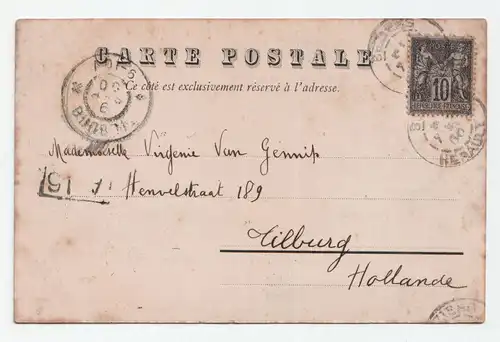 CARTE POSTALE
Ce côté est exclusivement réservé à l'adresse.
10
RÉPUBLIQUE FRANÇAISE
HÉRAULT
Mademoiselle Virginie Van Gennip
Henvelstraat 189
Tilburg
Hollande